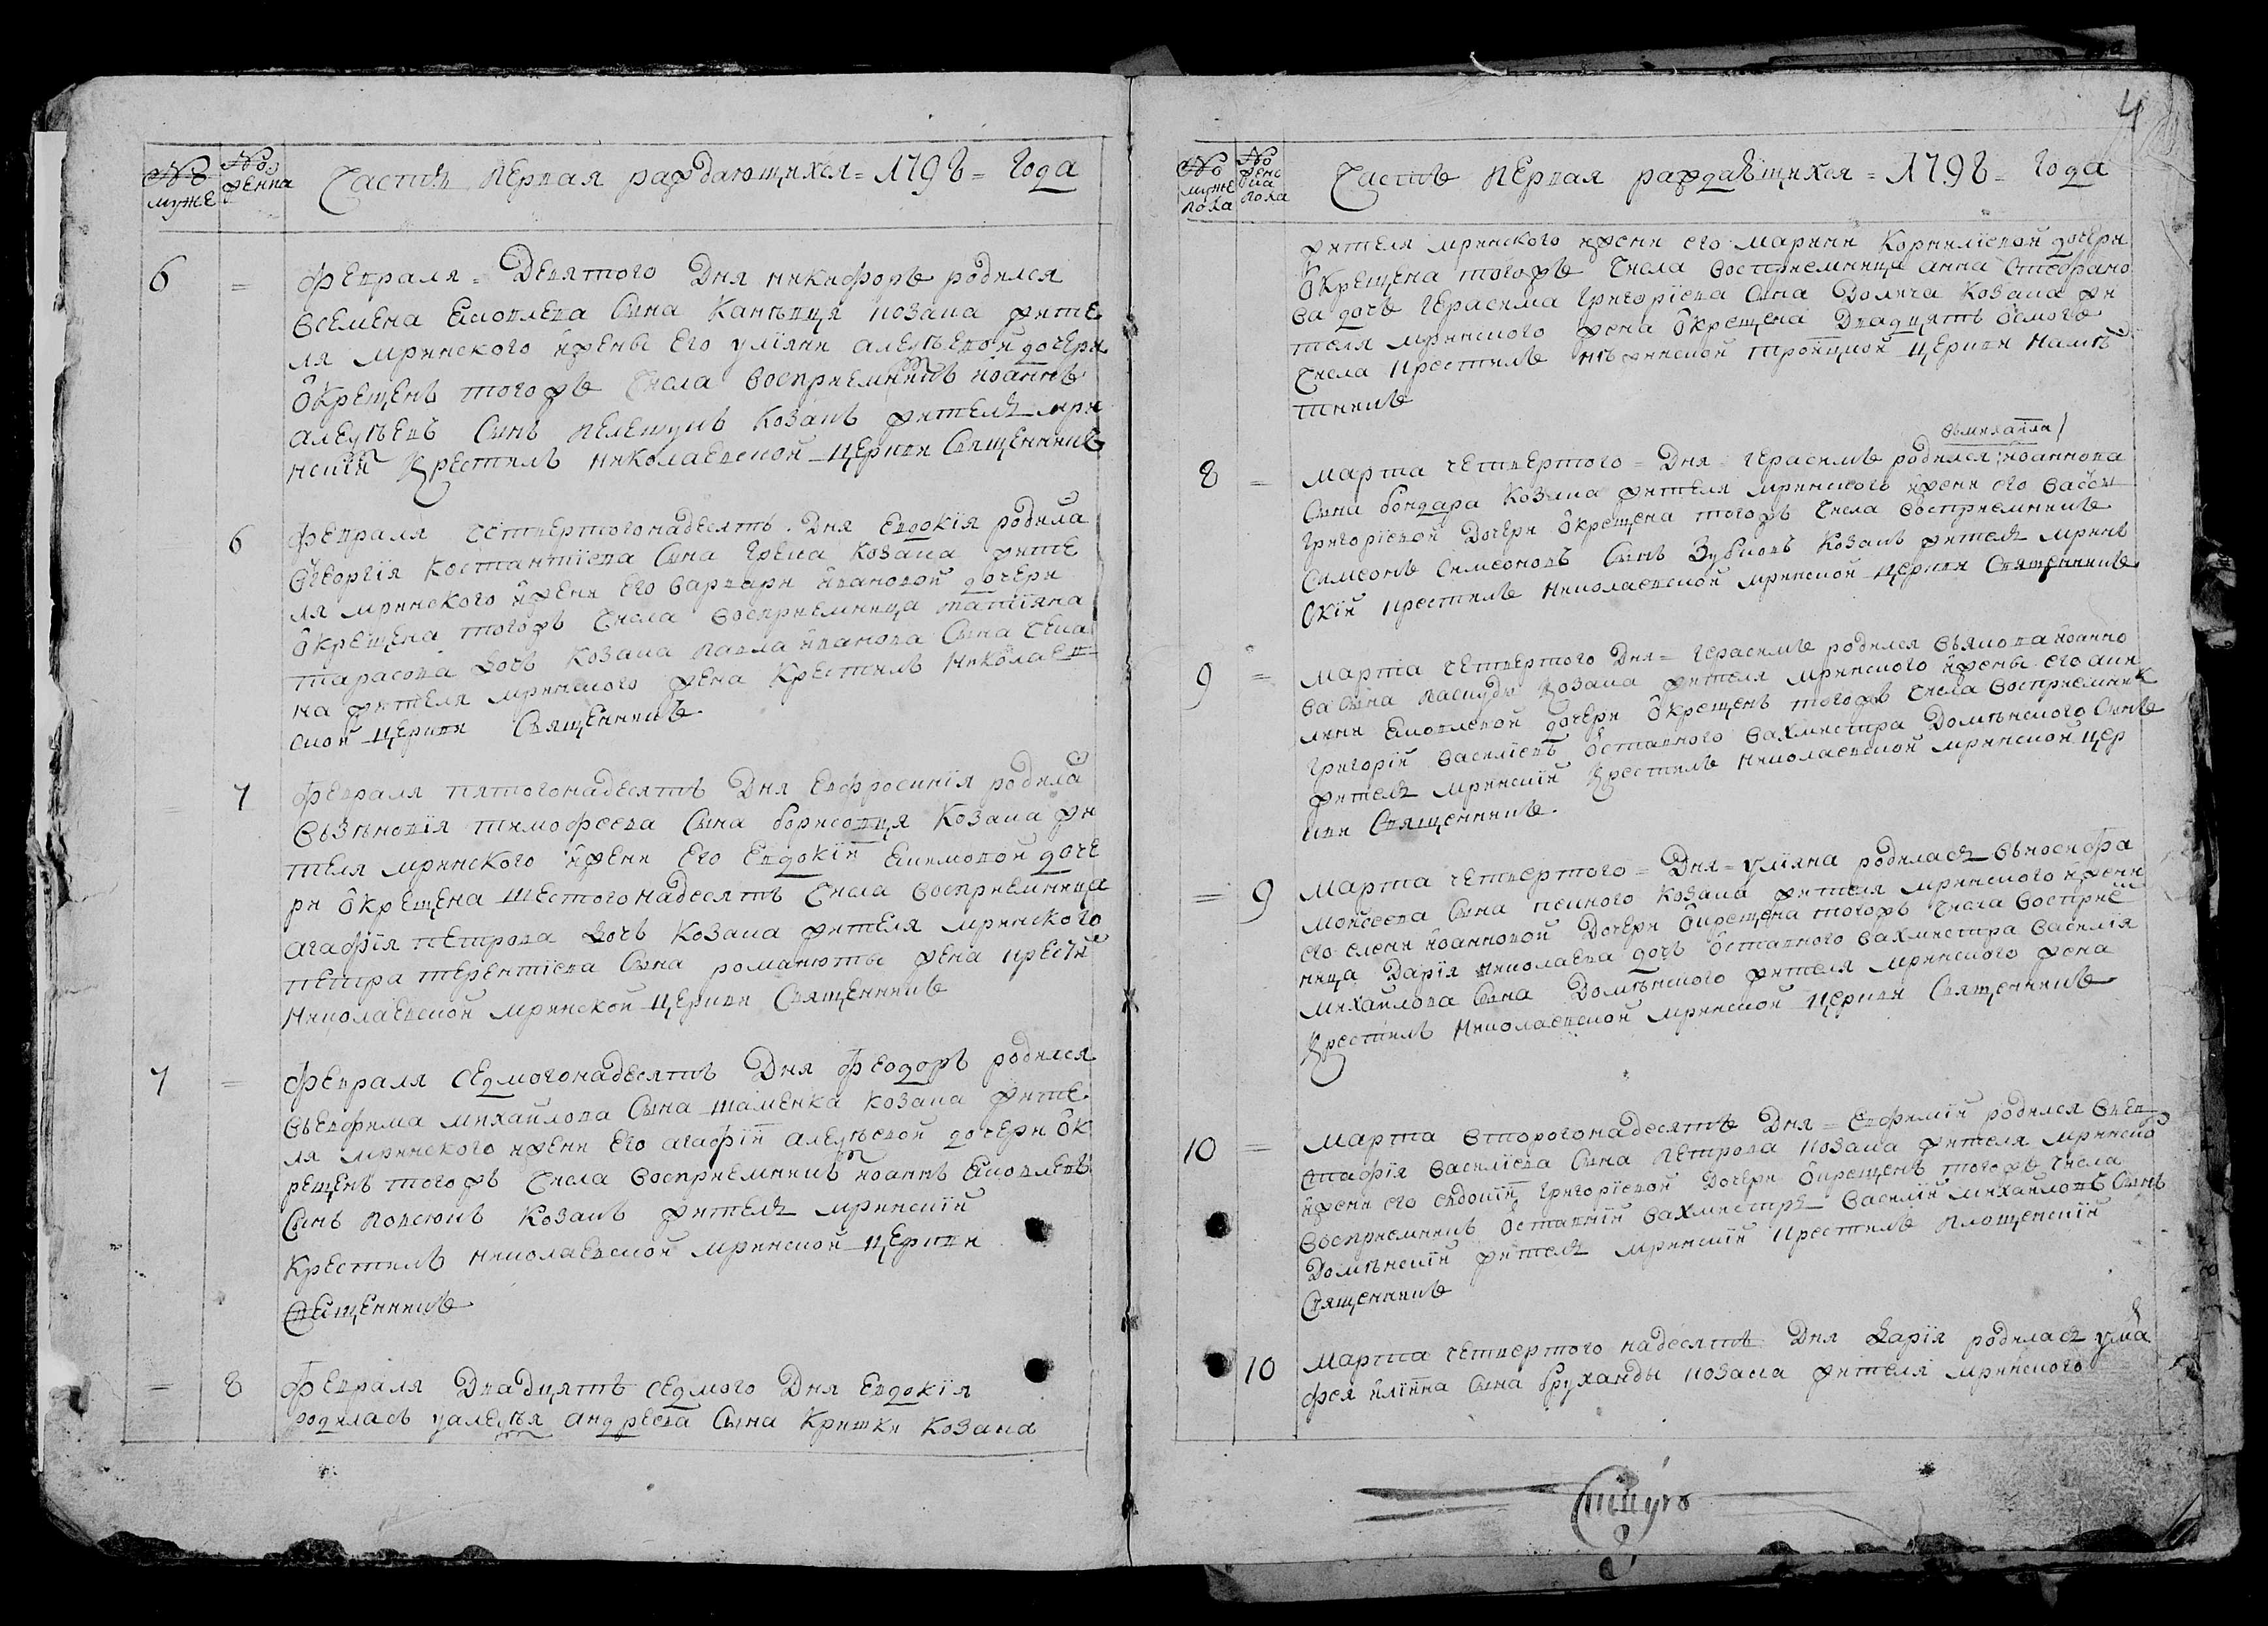 № муже
№ женка
Часть первая раждающихся = 1798 = Года
6 = Февраля = Девятого Дня никифоръ родился
всемена яковлева Сына Канѣвця козака жите
ля мринского ижены Его улїяни алеѯѣевой дочери
Окрещенъ тогожъ Числа восприемникъ иоаннъ
алеѯѣевъ Сынъ пелешукъ козакъ житель мри
нскїй Крестилъ николаевской церкви Священникъ
6 Февраля четвертогонадесять Дня Евдокїя родила
Ѿгеоргїя Костантїева Сына Грека Козака жите
ля мринского ижени Его варвари ивановой дочери
Окрещена тогожъ Числа восприемница татїяна
тарасова Дочь Козака павла иванова Сына
на жителя мринского жена Крестилъ николаев
ской церкви Священникъ
= 7 Февраля пятогонадесять Дня Евфросинїя родила
въ тимофеева Сына борисовця Козака жи
теля мринского ижени Его Евдокїи Екимовой доче
ри Окрещена шестогонадесять Числа восприемница
агафїя петрова Дочь Козака жителя мринского
петра терентїева Сына романюты жена крести
николаевской мринской церкви Священникъ
7 = Февраля седмогонадесять Дня феодоръ родился
въевфима михайлова Сына шаменка козака жите
ля мринского ижени Его агафїи алеѯѣевой дочери Ок
рещенъ тогожъ Числа восприемникъ иоаннъ яковлевъ
Сынъ козакъ житель мринскїй
Крестилъ николаевской мринской церкви
Священникъ
= 8 Февраля Двадцять седмого Дня Евдокїя
родилась уалеѯѣя андреева Сына Кришки козака
4
№ муже пола
№ женс ка пола
Часть первая раждающихся = 1798 = Года
жителя мринского ижени его марини Корнилїевой дочери
Окрещена тогожъ Числа восприемница анна стефано
ва дочь герасима григорїева Сына козака жи
теля мринского жена Окрещена Двадцять осмого
Числа крестилъ нѣжинской троицкой церкви намѣ
тникъ
вмихаила
8 = Марта четвертого = Дня герасимъ родился иоаннова
Сына бондара Козака жителя мринского ижени его васси
григорїевой Дочери Окрещена тогожъ Числа восприемникъ
Симеонъ Симеоновъ Сынъ Зубковъ Козакъ житель мринъ
скїй крестилъ николаевской мринской церкви Священникъ
9 = Марта четвертого Дня = герасимъ родился въякова иоанно
ва Сына паскуды Козака жителя мринского ижены его аки
лини яковлевой дочери Окрещенъ тогожъ Числа восприемник
григорїй василїевъ Оставного вахмистра Домѣнского Сынъ
житель мринскїй Крестилъ николаевской мринской цер
кви Священникъ.
= 9 Марта четвертого = Дня = улїяна родилась въиосифа
моисеева Сына козака жителя мринского ижени
его елени иоанновой Дочери Окрещена тогожъ Числа восприе
мница Дарїя николаева дочь Оставного вахмистра василїя
михайлова Сына Домѣнского жителя мринского жена
Крестилъ николаевской мринской церкви Священникъ
10 = Марта второгонадесять Дня = Евфимїи родился въев
стафїя василїева Сына петрова козака жителя мринско
ижени его евдокїи григорїевой Дочери Окрещенъ тогожъ Числа
восприемникъ Оставнїй вахмистръ василїй михайловъ Сынъ
Домѣнскїй житель мринскїй крестилъ площенскїй
Священникъ
10 Марта четвертого надесять Дня Дарїя родилась ума
фея илїина Сына бруханды козака жителя мринского